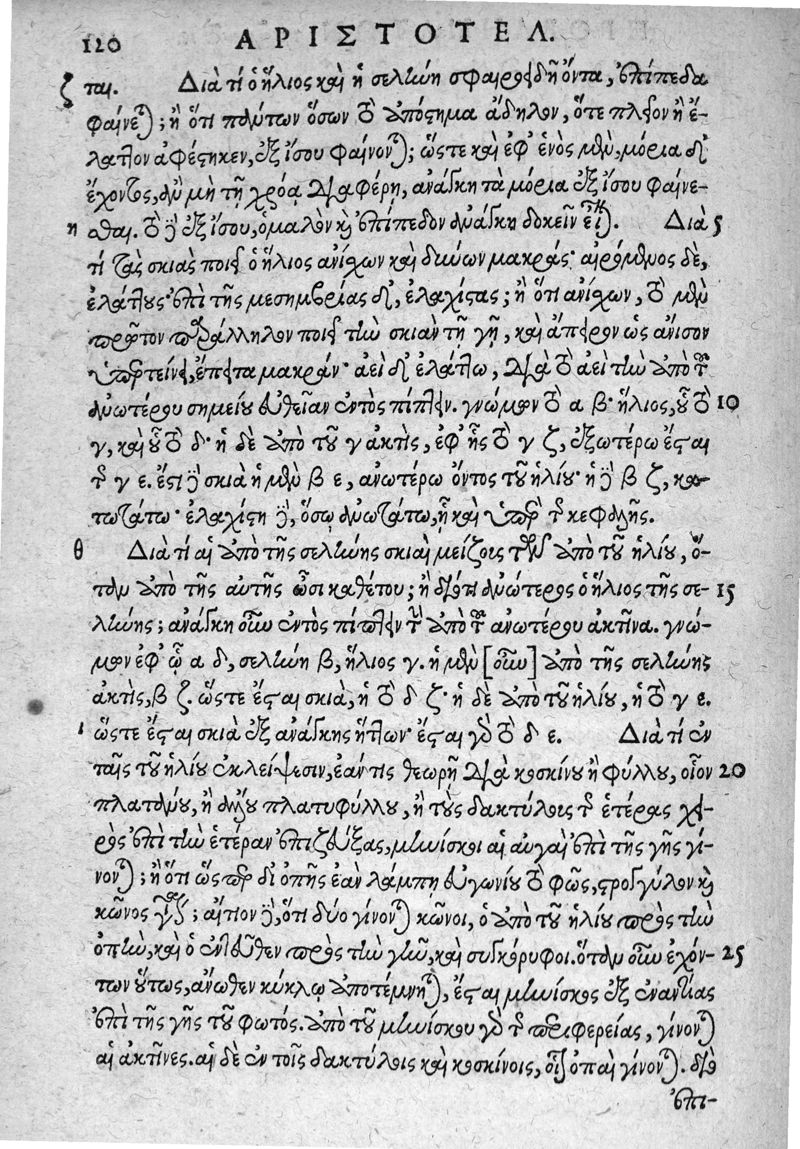 120 ΑΡΙΣΤΟΤΕΛ.
ζ ται. Διὰ τί ὁ ἥλιος καὶ ἡ σελήνη σφαιροειδῆ ὄντα, ἐπίπεδα
φαίνεται; ἢ ὅτι πάντων ὅσων τὸ ἀπόστημα ἄδηλον, ὅτε πλεῖον ἢ ἔ-
λαττον ἀφέστηκεν, ἐξ ἴσου φαίνονται; ὥστε καὶ ἐφ' ἑνὸς μὲν, μόρια δ'
ἔχοντος, ἂν μὴ τῇ χρόᾳ διαφέρῃ, ἀνάγκη τὰ μόρια ἐξ ἴσου φαίνε-
η σθαι. τὸ δὲ ἐξ ἴσου, ὁμαλὸν καὶ ἐπίπεδον ἀνάγκη δοκεῖν εἶναι. Διὰ 5
τί τὰς σκιὰς ποιεῖ ὁ ἥλιος ἀνίσχων καὶ δύνων μακράς· αἰρόμενος δὲ,
ἐλάττους· ἐπὶ τῆς μεσημβρίας δ', ἐλαχίστας; ἢ ὅτι ἀνίσχων, τὸ μὲν
πρῶτον παράλληλον ποιεῖ τὴν σκιὰν τῇ γῇ, καὶ ἄπειρον ὡς ἄνισον
ὑπερτείνει, ἔπειτα μακράν· ἀεὶ δ' ἐλάττω, διὰ τὸ ἀεὶ τὴν ἀπὸ τοῦ
ἀνωτέρου σημείου εὐθεῖαν ἐντὸς πίπτειν. γνώμων τὸ α β· ἥλιος, οὗ τὸ 10
γ, καὶ οὗ τὸ δ· ἡ δὲ ἀπὸ τοῦ γ ἀκτὶς, ἐφ' ἧς τὸ γ ζ, ἐξωτέρω ἔσται
τῆς γ ε. ἔστι δὲ σκιὰ ἡ μὲν β ε, ἀνωτέρω ὄντος τοῦ ἡλίου· ἡ δὲ β ζ, κα-
τωτάτω· ἐλαχίστη δὲ, ὅσῳ ἀνωτάτω, ᾖ καὶ ὑπὲρ τῆς κεφαλῆς.
θ Διὰ τί αἱ ἀπὸ τῆς σελήνης σκιαὶ μείζους τῶν ἀπὸ τοῦ ἡλίου, ὅ-
ταν ἀπὸ τῆς αὐτῆς ὦσι καθέτου; ἢ διότι ἀνώτερος ὁ ἥλιος τῆς σε- 15
λήνης; ἀνάγκη οὖν ἐντὸς πίπτειν τὴν ἀπὸ τοῦ ἀνωτέρου ἀκτῖνα. γνώ-
μων ἐφ' ᾧ α δ, σελήνη β, ἥλιος γ. ἡ μὲν [οὖν] ἀπὸ τῆς σελήνης
ἀκτὶς, β ζ. ὥστε ἔσται σκιὰ, ἡ τὸ δ ζ· ἡ δὲ ἀπὸ τοῦ ἡλίου, ἡ τὸ γ ε.
ι ὥστε ἔσται σκιὰ ἐξ ἀνάγκης ἥττων· ἔσται γὰρ τὸ δ ε. Διὰ τί ἐν
ταῖς τοῦ ἡλίου ἐκλείψεσιν, ἐάν τις θεωρῇ διὰ κοσκίνου ἢ φύλλου, οἷον 20
πλατάνου, ἢ ἄλλου πλατυφύλλου, ἢ τοὺς δακτύλους τῆς ἑτέρας χει-
ρὸς ἐπὶ τὴν ἑτέραν ἐπιζεύξας, μηνίσκοι αἱ αὐγαὶ ἐπὶ τῆς γῆς γί-
νονται; ἢ ὅτι ὥσπερ δι' ὀπῆς ἐὰν λάμπῃ εὐγωνίου τὸ φῶς, στρογγύλον καὶ
κῶνος γίνεται; αἴτιον δὲ, ὅτι δύο γίνονται κῶνοι, ὁ ἀπὸ τοῦ ἡλίου πρὸς τὴν
ὀπὴν, καὶ ὁ ἐντεῦθεν πρὸς τὴν γῆν, καὶ συγκόρυφοι. ὅταν οὖν ἐχόν- 25
των οὕτως, ἄνωθεν κύκλῳ ἀποτέμνηται, ἔσται μηνίσκος ἐξ ἐναντίας
ἐπὶ τῆς γῆς τοῦ φωτός. ἀπὸ τοῦ μηνίσκου γὰρ τῆς περιφερείας, γίνονται
αἱ ἀκτῖνες. αἱ δὲ ἐν τοῖς δακτύλοις καὶ κοσκίνοις, οἷον ὀπαὶ γίνονται. διὸ
ἐπι-